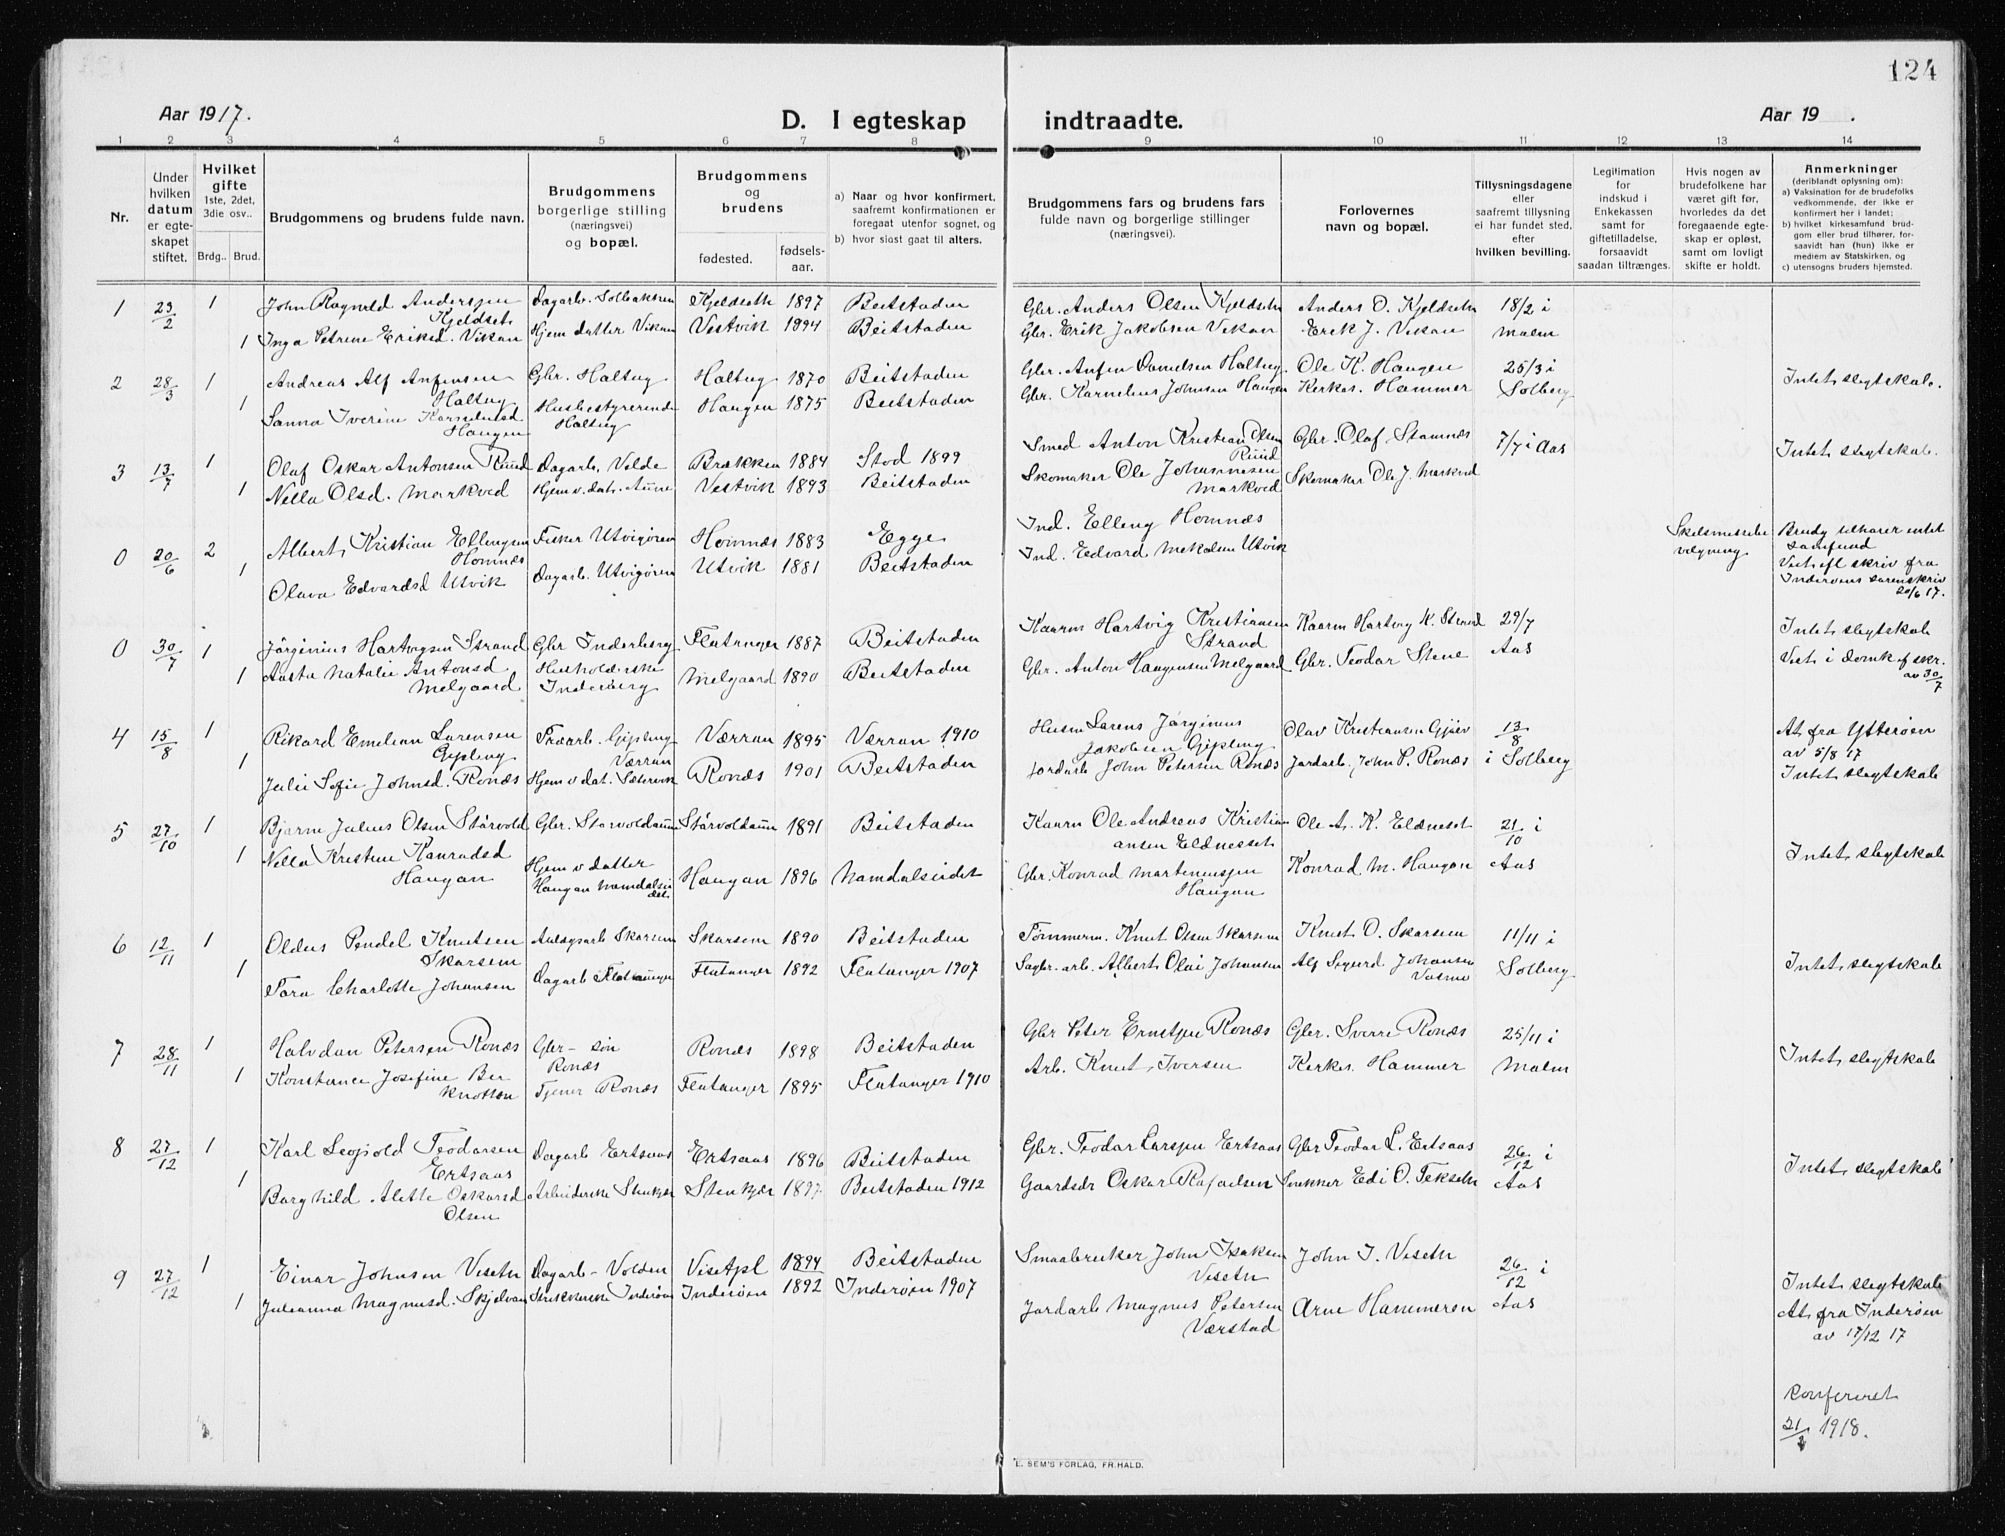 124
Aar 1917.
D. I egteskap indtraadte.
Aar 19 .
1 2 3 4 5 6 7 8 9 10 11 12 13 14
Nr.
Under hvilken datum er egteskapet stiftet.
Hvilket gifte 1ste, 2det, 3die osv..
Brdg.. Brud.
Brudgommens og brudens fulde navn.
Brudgommens borgerlige stilling (næringsvei) og bopæl.
Brudgommens og brudens
fødested.
fødsels-aar.
a) Naar og hvor konfirmert, saafremt konfirmationen er foregaat utenfor sognet, og
b) hvor sidst gaat til alters.
Brudgommens fars og brudens fars fulde navn og borgerlige stillinger (næringsvei).
Forlovernes navn og bopæl.
Tillysningsdagene eller saafremt tillysning ei har fundet sted, efter hvilken bevilling.
Legitimation for indskud i Enkekassen samt for giftetilladelse, forsaavidt saadan tiltrænges.
Hvis nogen av brudefolkene har været gift før, hvorledes da det foregaaende egteskap er opløst, samt om lovligt skifte er holdt.
Anmerkninger (deriblandt oplysning om):
a) Vaksination for de brudefolks vedkommende, der ikke er konfirmert her i landet;
b) hvilket kirkesamfund brudgom eller brud tilhører, forsaavidt han (hun) ikke er mediem av Statskirken, og
c) utensogns bruders hjemsted.
1 23/2 1 John Ragnvald Anderssen Kjeldseth Dagarb. Solbakken Kjeldseth 1897 Beitstaden Gbr. Anders Olsen Kjeldseth Anders O. Kjeldseth 18/2 i
1 Inga Petrine Eriksd. Vikan Hjem datter Vikan Vestvik 1894 Beitstaden Gbr. Erik Jakobsen Vikan Erik J. Vikan Malm
2 28/3 1 Andreas Alf Anfinsen Haltug Gbr. Haltug Haltug 1870 Beitstaden Gbr. Anfin Danielsen Haltug Ole K. Haugen 25/3 i Intet slegtskab.
1 Sanna Iverine Karneliusd Haugen Husbestyrerinde Haltug Haugen 1875 Beitstaden Gbr. Karnelius Johnsen Haugen Kerkes. Hammer Solberg
3 13/7 1 Olaf Oskar Antonsen Ruud Dagarb. Velde Brækken 1884 Stod 1899 Smed Anton Kristian Olsen Ruud Gbr. Olaf Stamnæs 7/7 i Aas Intet slegtskab.
1 Nella Olsd. Markved Hjemv. dat. Aune Vestvik 1893 Beitstaden Skomaker Ole Johannesen Markved Skomaker Ole J. Markved
0 20/6 2 Albert Kristian Ellingsen Homnæs Fisker Utvigøren Homnæs 1883 Egge Ind. Elling Homnæs Skelsmisse bevegning Brudg tilhører intet samfund
1 Olava Edvardsd Utvik Dagarb. Utvigøren Utvik 1881 Beitstaden Ind. Edvard Mekalsen Utvik Viet efl skriv fra Inderøens sorenskriv 20/6 17.
0 30/7 1 Jørginius Hartvigsen Strand Gbr Inderberg Flatanger 1887 Beitstaden Kaarm Hartvig Kristiansen Strand Kaarm Hartvig K. Strand 29/7 Intet slegtskab
1 Aasta Natalie Antonsd Melgaard Husholderske Inderberg Melgaard 1890 Beitstaden Gbr. Anton Haagensen Melgaard Gbr. Teodor Stene Aas Viet i Domk f skr. av 30/7
4 15/8 1 Rikard Emelian Larensen Gipling Træarb. Gipling Værran Værran 1895 Værran 1910 Husm Larens Jørginus Jakobsen Gipling Olav Kristiansen Gjæv 13/8 At fra Ytterøen av 5/8 17
1 Julie Sofie Johnsd. Ronæs Hjem v dat. Sætervik Ronæs 1901 Beitstaden Jordarb John Petersen Ronæs Jordarb. John P. Ronæs i Solberg Intet slegtskab
5 27/10 1 Bjarne Julius Olsen Størvold Gbr. Størvoldaunn Størvoldaunn 1891 Beitstaden Kaarm Ole Andreas Kristiansen Eldnesset Ole A. K. Eldnesset 21/10 i
1 Nella Kristine Konradsd Haugan Hjem v datter Haugan Namdalseidet Haugan 1896 Namdalseidet Gbr. Konrad Marteniussen Haugan Konrad M. Haugan Aas Intet slegtskab
6 12/11 1 Oldus Pendel Knutsen Skarsem Anlægsarb Skarsem Skarsem 1890 Beitstaden Tømmerm. Knut Olsen Skarsem Knut O. Skarsem 11/11 i Intet slegtskab
1 Tora Charlotte Johansen Dagarb Flatanger Flatanger 1892 Flatanger 1907 Sagbr. arb. Albert Olai Johansen Alf Sigurd Johansen Solberg
7 28/11 1 Halvdan Petersen Ronæs Gbr-søn Ronæs Ronæs 1898 Beitstaden Gbr Peter Ernstsen Ronæs Gbr. Sverre Ronæs 25/11 i Intet slegtskab
1 Konstance Josefine Ber knotten Tjener Ronæs Flatanger 1895 Flatanger 1910 Arb. Knut Iversen Kerkes. Hammer Malm
8 27/12 1 Karl Leopold Teodorsen Ertsaas Dagarb Ertsaas Ertsaas 1896 Beitstaden Gbr. Teodor Larssen Ertsaas Gbr Teodor L. Ertsaas 26/12 i Intet slegtskab
1 Borghild Alette Oskarsd Olsen Arbeiderske Stenkjær Stenkjær 1897 Beitstaden 1912 Gaardsdr Oskar Rafaelsen Snekker Edi O. Tekseth Aas
9 27/12 1 Einar Johnsen Viseth Dagarb- Volden Viset pl 1894 Beitstaden Smaabruker John Isaksen Viseth John I. Viseth 26/12 i Intet slegtskab
1 Julianna Magnusd. Skjelvan Strikkerske Inderøen Inderøen 1892 Inderøen 1907 Jordarb Magnus Petersen Værstad Arne Hammeren Aas At fra Inderøen av 17/12 17
Konfereret
21/2 1918.
E. SEM'S FORLAG, FR.HALD.